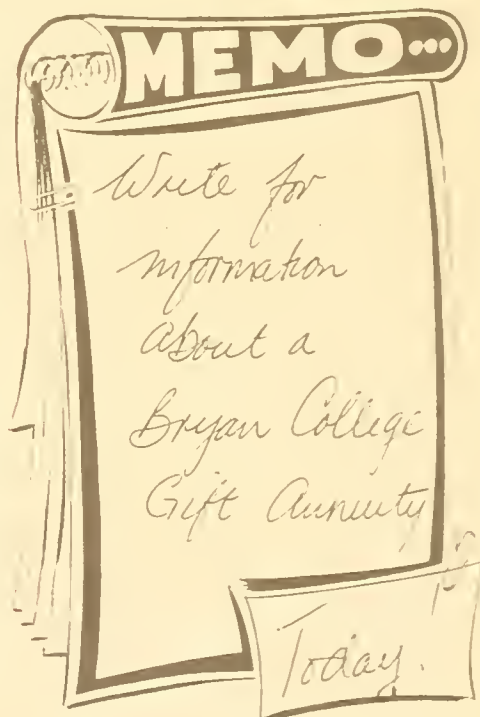 MEMO...
Write for
information
about a
Bryan College
Gift Annuity
Today!